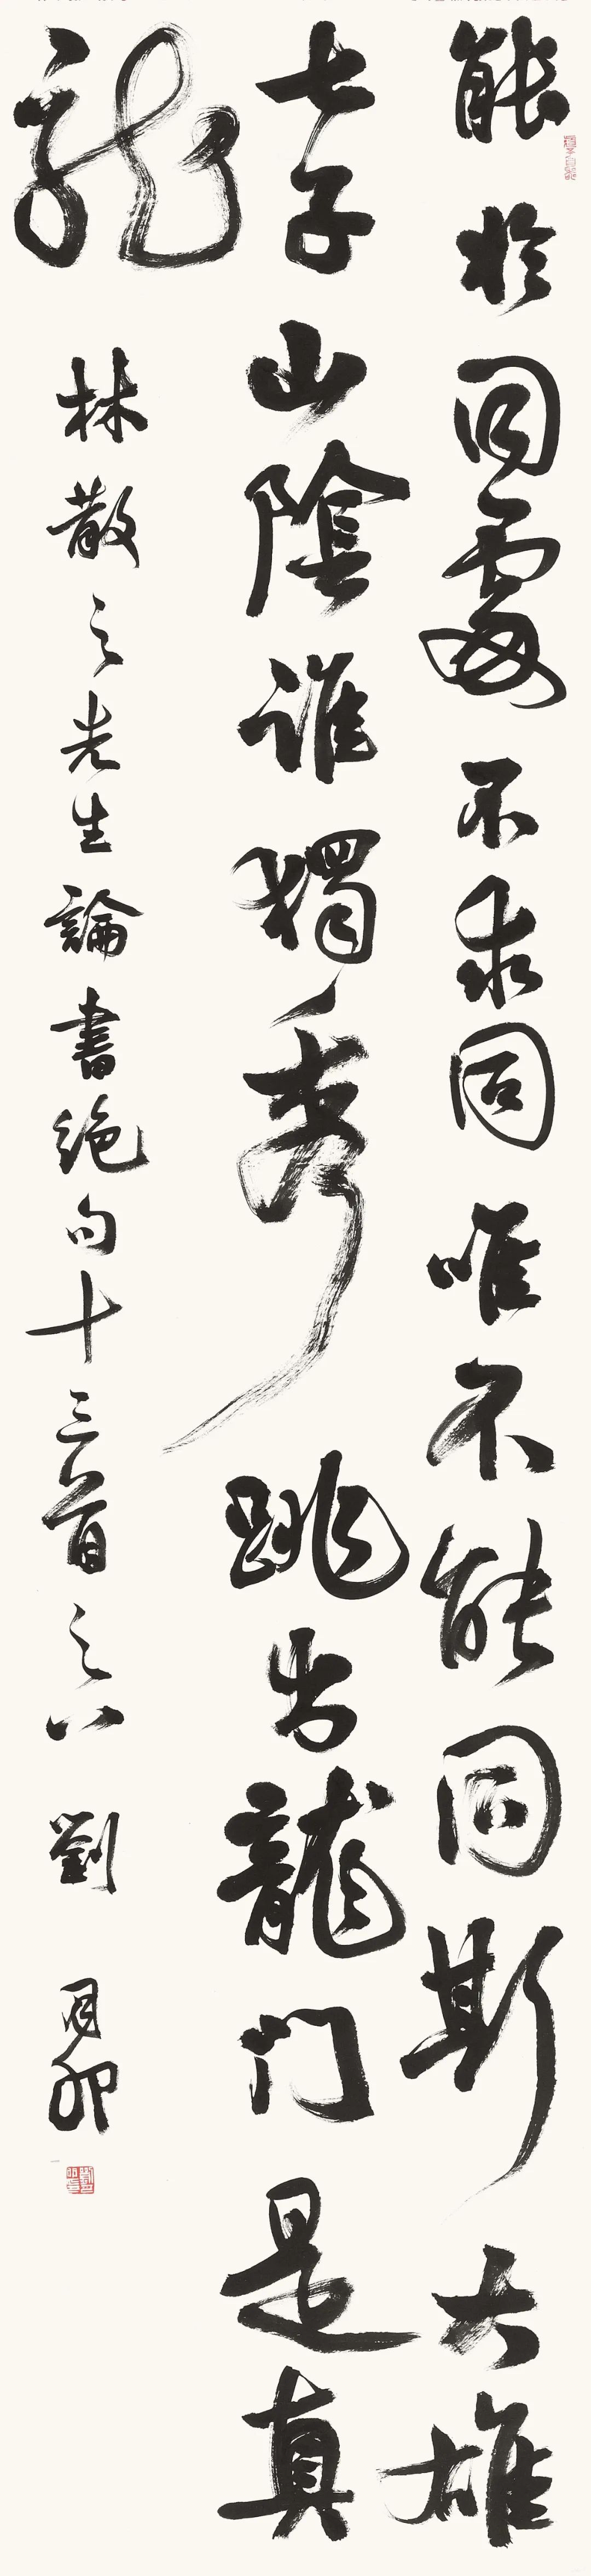 能於同處不求同唯不能同斯大雄
七子山陰誰獨秀跳出龍门是真
龍
林散之先生論書絶句十三首之八 劉月卯